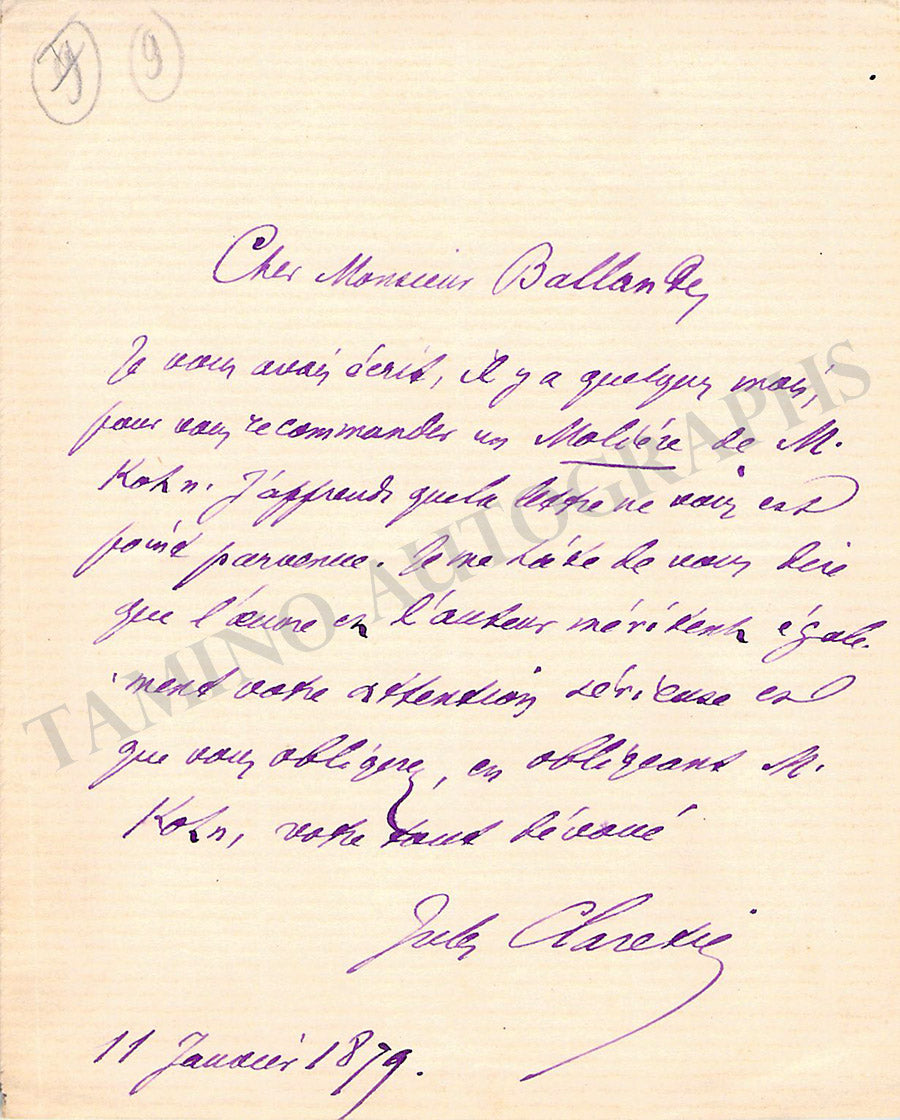 9
Cher Monsieur Ballande,
Je vous avais écrit, il y a quelques mois,
pour vous recommander un Molière de M.
Kohn. J'apprends que la lettre ne vous est
point parvenue. Je me hâte de vous dire
que l'œuvre et l'auteur méritent égale-
ment votre attention sérieuse et
que vous obligerez, en obligeant M.
Kohn, votre tout dévoué
Jules Claretie
11 Janvier 1879.
TAMINO AUTOGRAPHS